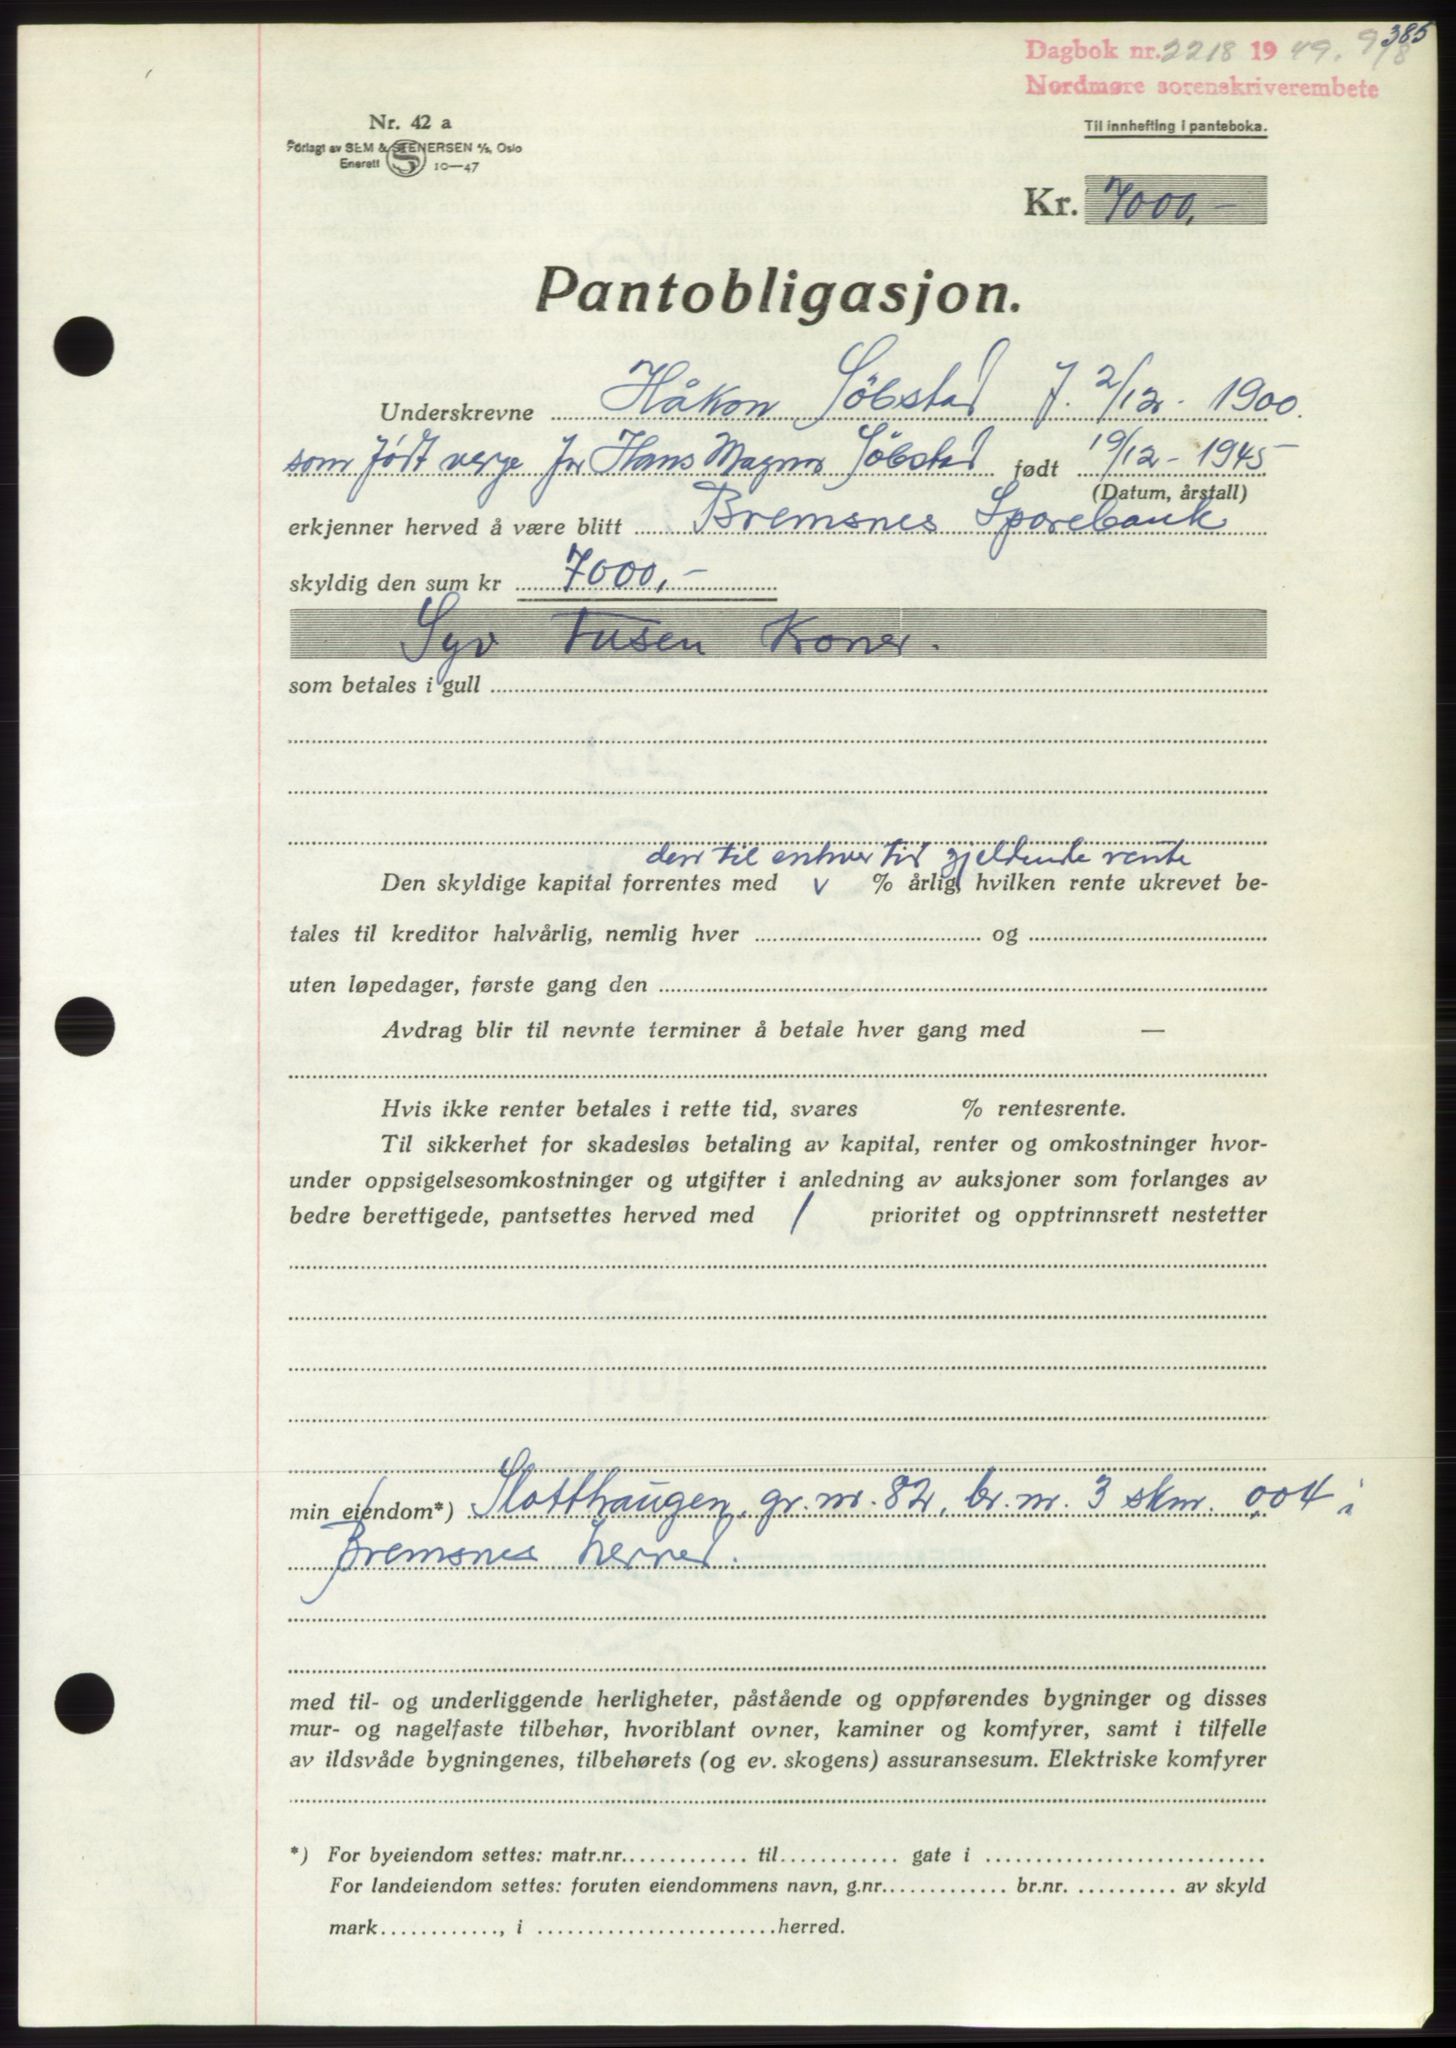 385
Dagbok nr. 2218 1949. 9/8
Nordmøre sorenskriverembete
Nr. 42 a
Til innhefting i panteboka.
Forlagt av SEM & STENERSEN A/S, Oslo
Enerett S 10—47
Kr. 7000,-
Pantobligasjon.
Underskrevne Håkon Söbstad f. 2/12 - 1900.
som født verge for Hans Magnor Söbstad født 19/12 - 1945
(Datum, årstall)
erkjenner herved å være blitt Bremsnes Sparebank
skyldig den sum kr 7000,-
Syv tusen kroner.
som betales i gull
den til enhver tid gjeldende rente
Den skyldige kapital forrentes med v % årlig, hvilken rente ukrevet be-
tales til kreditor halvårlig, nemlig hver og
uten løpedager, første gang den
Avdrag blir til nevnte terminer å betale hver gang med —
Hvis ikke renter betales i rette tid, svares % rentesrente.
Til sikkerhet for skadesløs betaling av kapital, renter og omkostninger hvor-
under oppsigelsesomkostninger og utgifter i anledning av auksjoner som forlanges av
bedre berettigede, pantsettes herved med 1 prioritet og opptrinnsrett nestetter
min eiendom*) Slotthaugen, gr. nr. 82, br. nr. 3 skm. 0,04 i
Bremsnes herred.
med til- og underliggende herligheter, påstående og oppførendes bygninger og disses
mur- og nagelfaste tilbehør, hvoriblant ovner, kaminer og komfyrer, samt i tilfelle
av ildsvåde bygningenes, tilbehørets (og ev. skogens) assuransesum. Elektriske komfyrer
*) For byeiendom settes: matr.nr. til gate i
For landeiendom settes: foruten eiendommens navn, g.nr. br.nr. av skyld
mark , i herred.